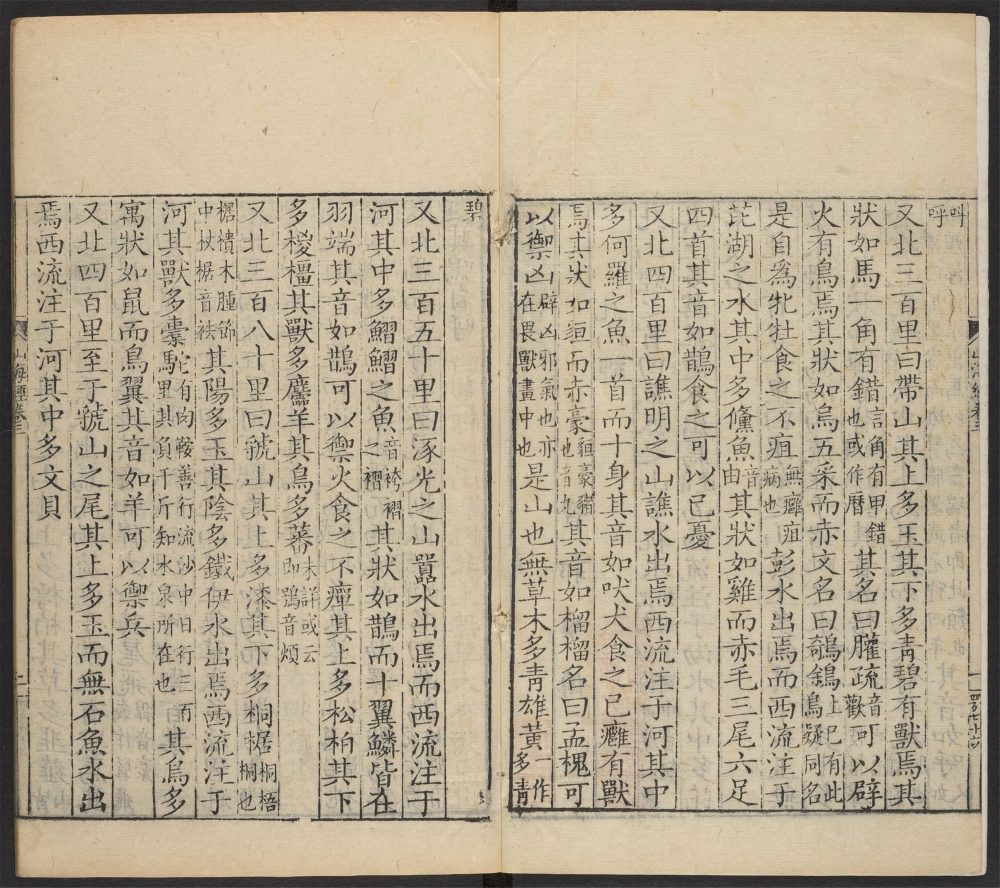 叫呼
又北三百里曰帶山其上多玉其下多靑碧有獸焉其
狀如馬一角有錯言角有甲錯也或作厝其名曰䑏疏音歡可以辟
火有鳥焉其狀如烏五采而赤文名曰鵸鵌上已有此鳥疑同名
是自爲牝牡食之不疽無癰疽病也彭水出焉而西流注于
芘湖之水其中多儵魚音由其狀如雞而赤毛三尾六足
四首其音如鵲食之可以已憂
又北四百里曰譙明之山譙水出焉西流注于河其中
多何羅之魚一首而十身其音如吠犬食之已癰有獸
焉其狀如貆而赤豪貆豪豬也音丸其音如榴榴名曰孟槐可
以禦凶辟凶邪氣也亦在畏獸畫中也是山也無草木多靑雄黃一作多靑
碧
又北三百五十里曰涿光之山囂水出焉而西流注于
河其中多鰼鰼之魚音袴褶之褶其狀如鵲而十翼鱗皆在
羽端其音如鵲可以禦火食之不癉其上多松柏其下
多椶橿其獸多麢羊其鳥多蕃未詳或云即鴞音煩
又北三百八十里曰虢山其上多漆其下多桐椐桐梧桐也
椐樻木腫節中杖椐音袪其陽多玉其陰多鐵伊水出焉西流注于
河其獸多橐駝有肉鞍善行流沙中日行三百里其負千斤知水泉所在也其鳥多
寓狀如鼠而鳥翼其音如羊可以禦兵
又北四百里至于虢山之尾其上多玉而無石魚水出
焉西流注于河其中多文貝
山海經卷三
二